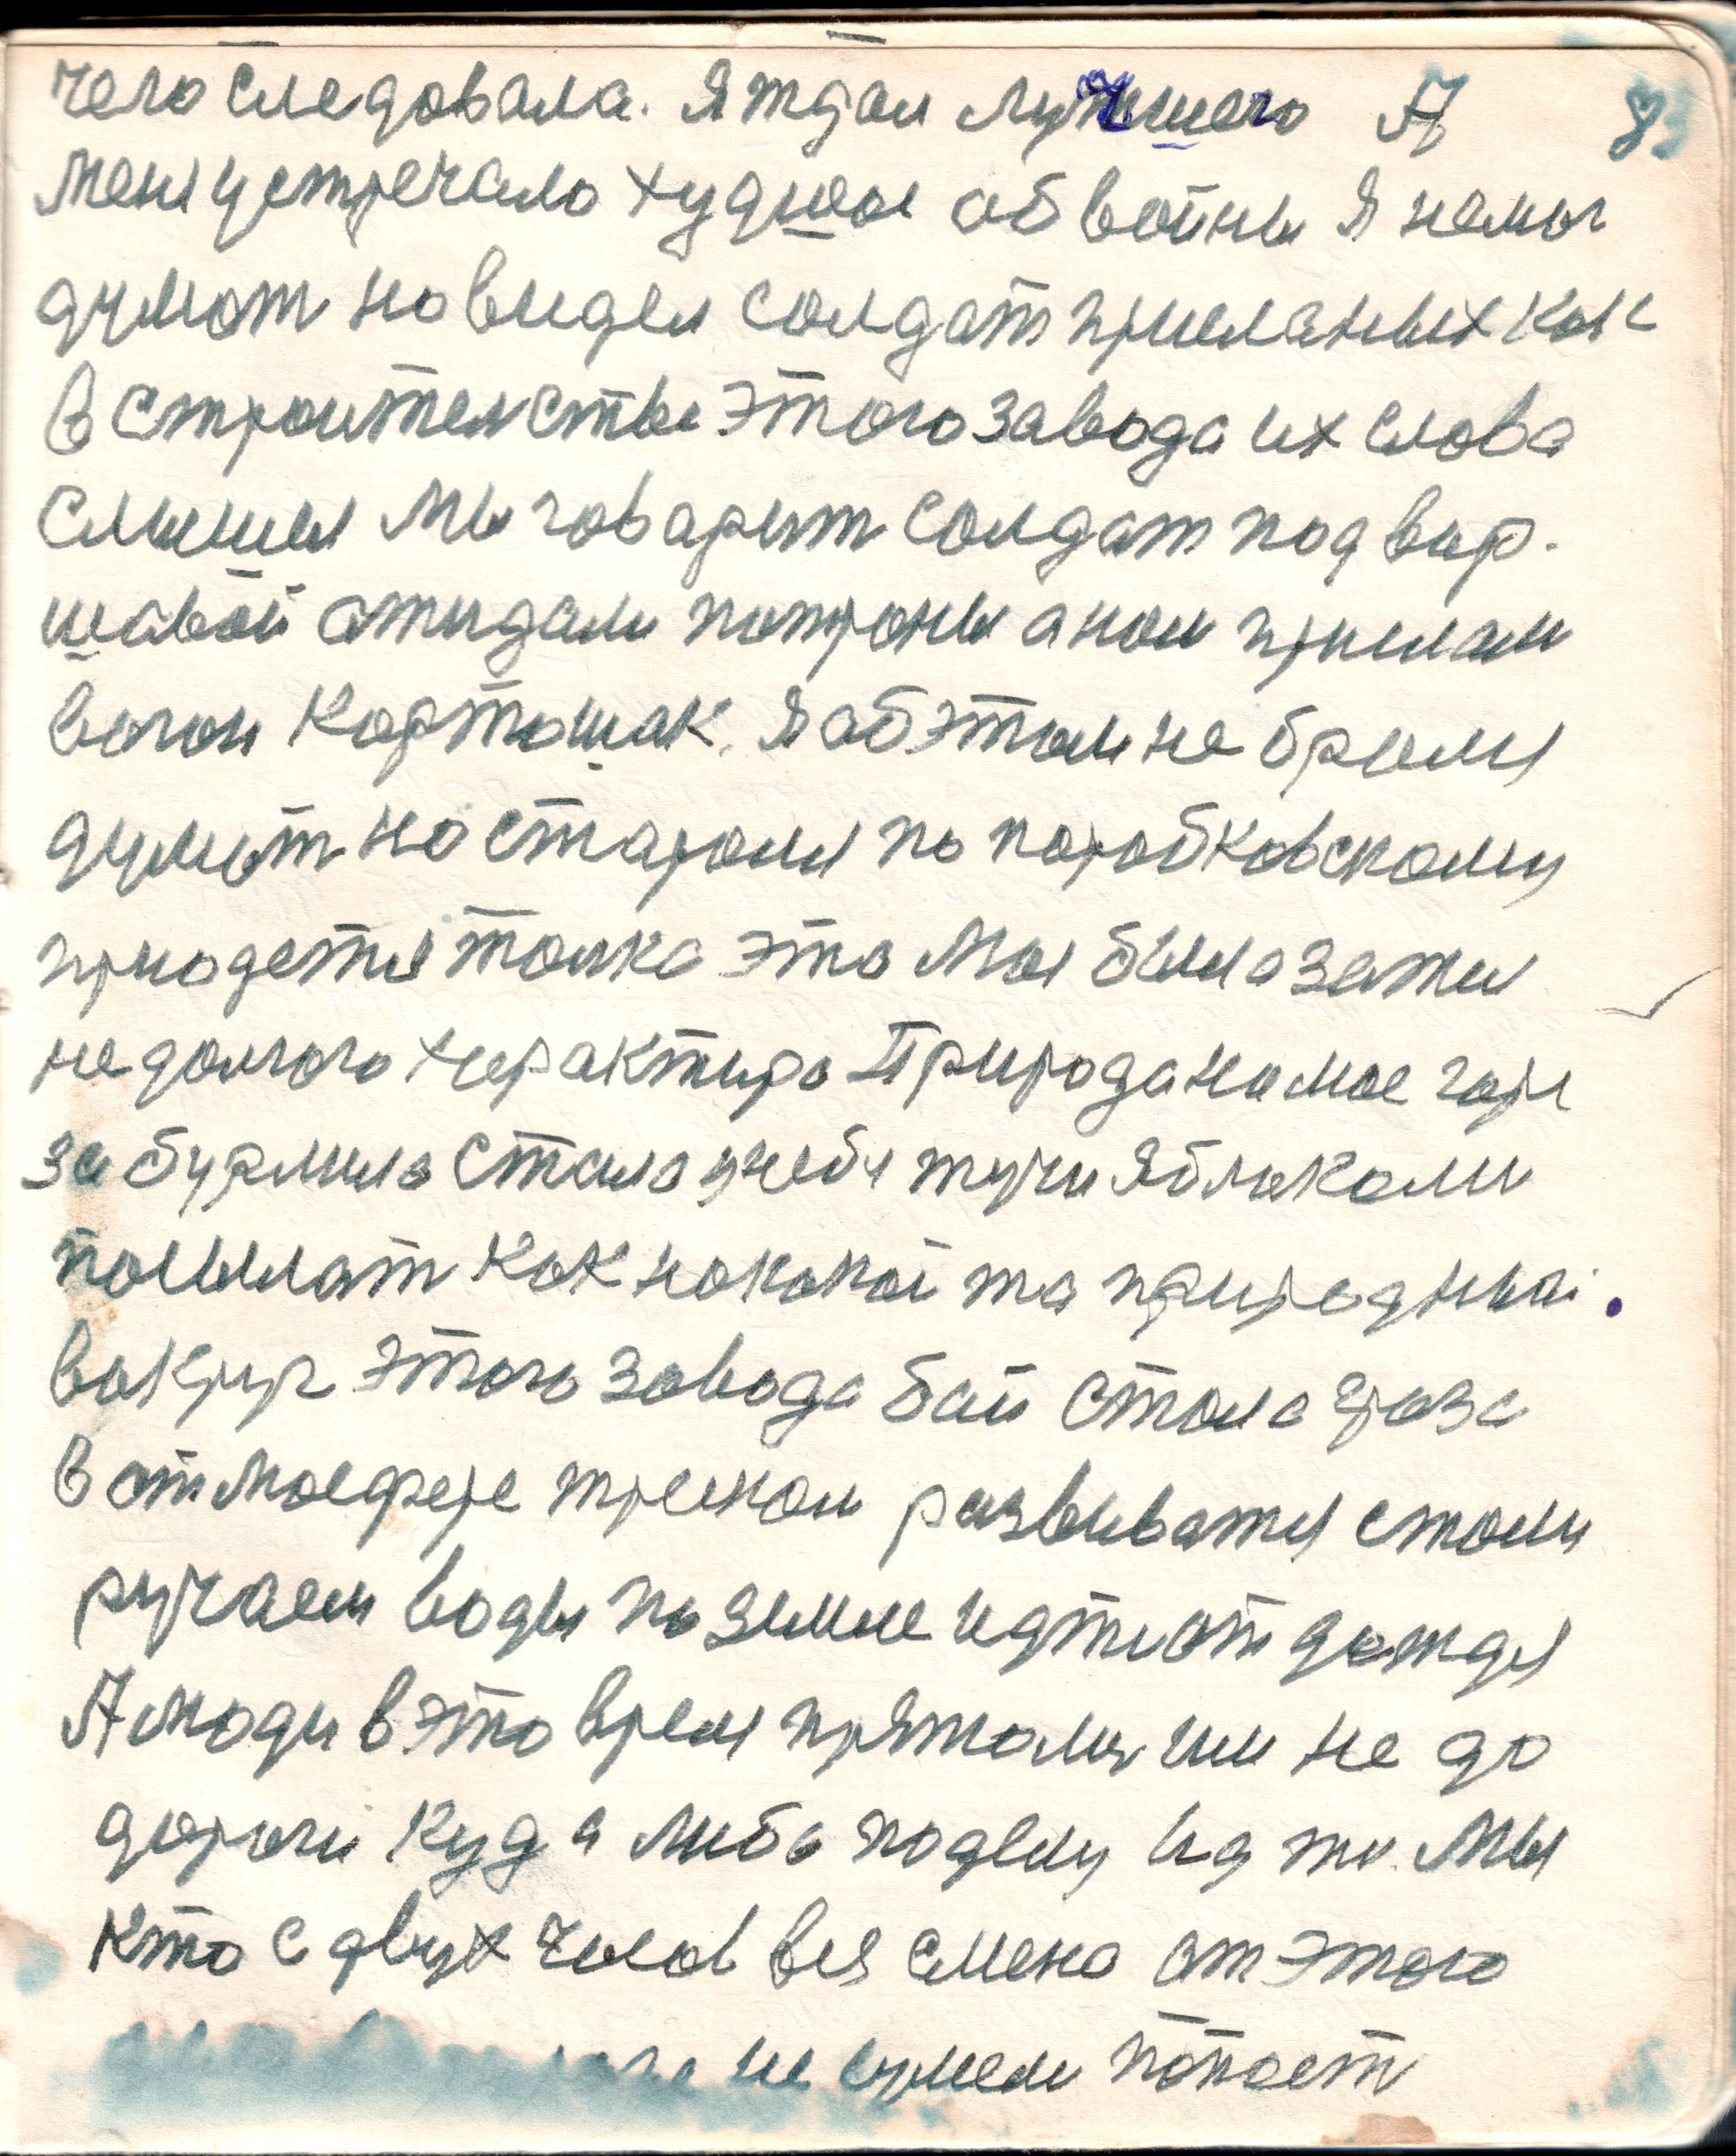 чего следовала. Я ждал лучшего А 83
меня устречало худшое об войны Я немог
думат но видел солдат присланых как
в строителстве этого завода их слова
слышел мы говарят солдат под вар.
шавой ожидали патроны а нам прислали
вагон картошак. Я об этом не брался
думат но старался по паробковскому
приодется толка это мая была затея
не долгого характира Природа на мое горе
за бурлила стала у небя тучи яблоками
посылат как на какой та природный.
вакруг этого завода бай стала граза
в атмосфере треском развиватся стали
ручаем воды по земле идти от дождя
А люди в это время прятались им не до
дороги куда либо по делу ид ти. Мы
кто с двух часов вся смена от этого
не сумели попаст